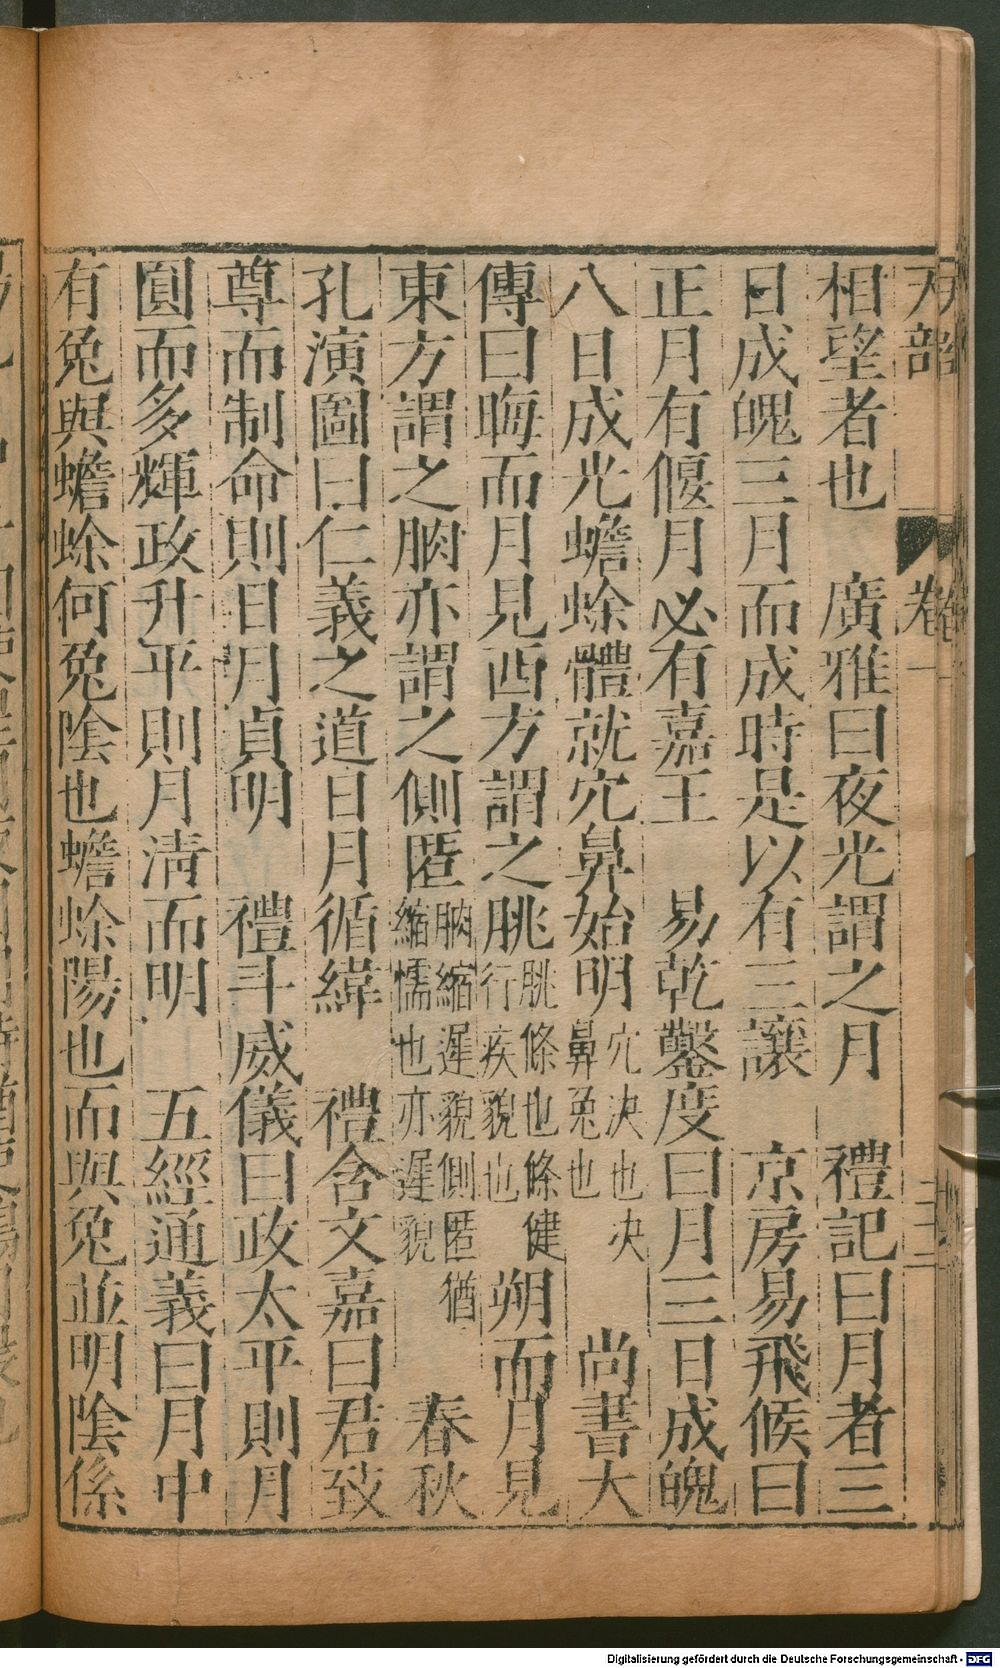 天部　卷一
相望者也　廣雅曰夜光謂之月　禮記曰月者三
日成魄三月而成時是以有三讓　京房易飛候曰
正月有偃月必有嘉王　易乾鑿度曰月三日成魄
八日成光蟾蜍體就穴鼻始明穴決也决鼻兔也　尚書大
傳曰晦而月見西方謂之朓朓條也條健行疾貌也　朔而月見
東方謂之朒亦謂之側匿朒縮遲貌側匿猶縮懦也亦遲貌　春秋
孔演圖曰仁義之道日月循緯　禮含文嘉曰君致
尊而制命則日月貞明　禮斗威儀曰政太平則月
圓而多輝政升平則月清而明　五經通義曰月中
有兔與蟾蜍何兔陰也蟾蜍陽也而與兔並明陰係
Digitalisierung gefördert durch die Deutsche Forschungsgemeinschaft - DFG